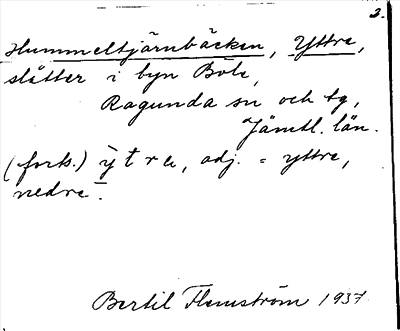 2.
Hummeltjärnbäcken, Yttre,
slåtter i byn Böle,
Ragunda sn och tg,
Jämtl. län.
(forts.) ỳtre, adj. = yttre,
nedre.
Bertil Flemström 1937